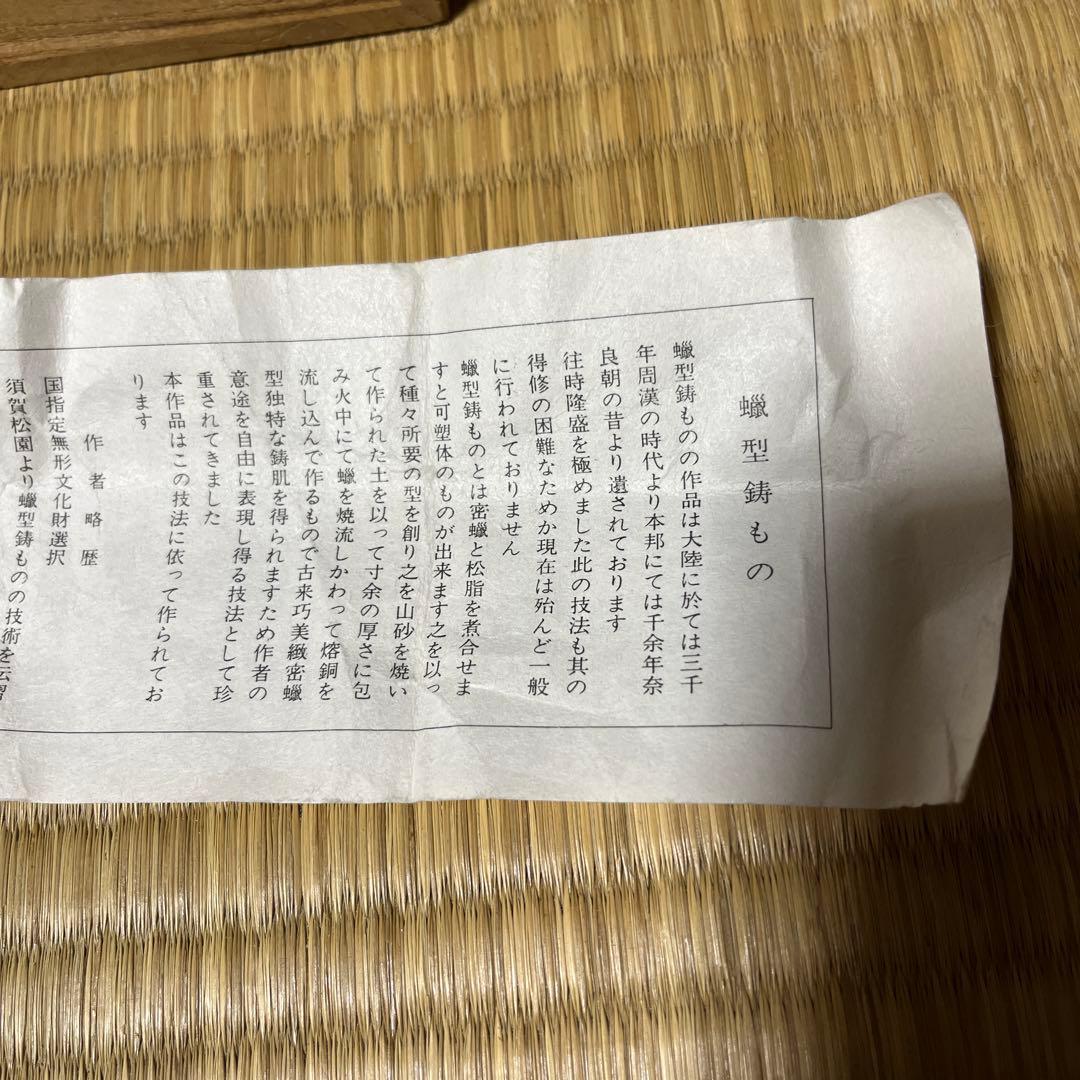 蠟型鋳もの
蠟型鋳ものの作品は大陸に於ては三千
年周漢の時代より本邦にては千余年奈
良朝の昔より遺されております
往時隆盛を極めました此の技法も其の
得修の困難なためか現在は殆んど一般
に行われておりません
蠟型鋳ものとは密蠟と松脂を煮合せま
すと可塑体のものが出来ます之を以っ
て種々所要の型を創り之を山砂を焼い
て作られた土を以って寸余の厚さに包
み火中にて蠟を焼流しかわって熔銅を
流し込んで作るもので古来巧美緻密蠟
型独特な鋳肌を得られますため作者の
意途を自由に表現し得る技法として珍
重されてきました
本作品はこの技法に依って作られてお
ります
作者略歴
国指定無形文化財選択
須賀松園より蠟型鋳ものの技術を伝習